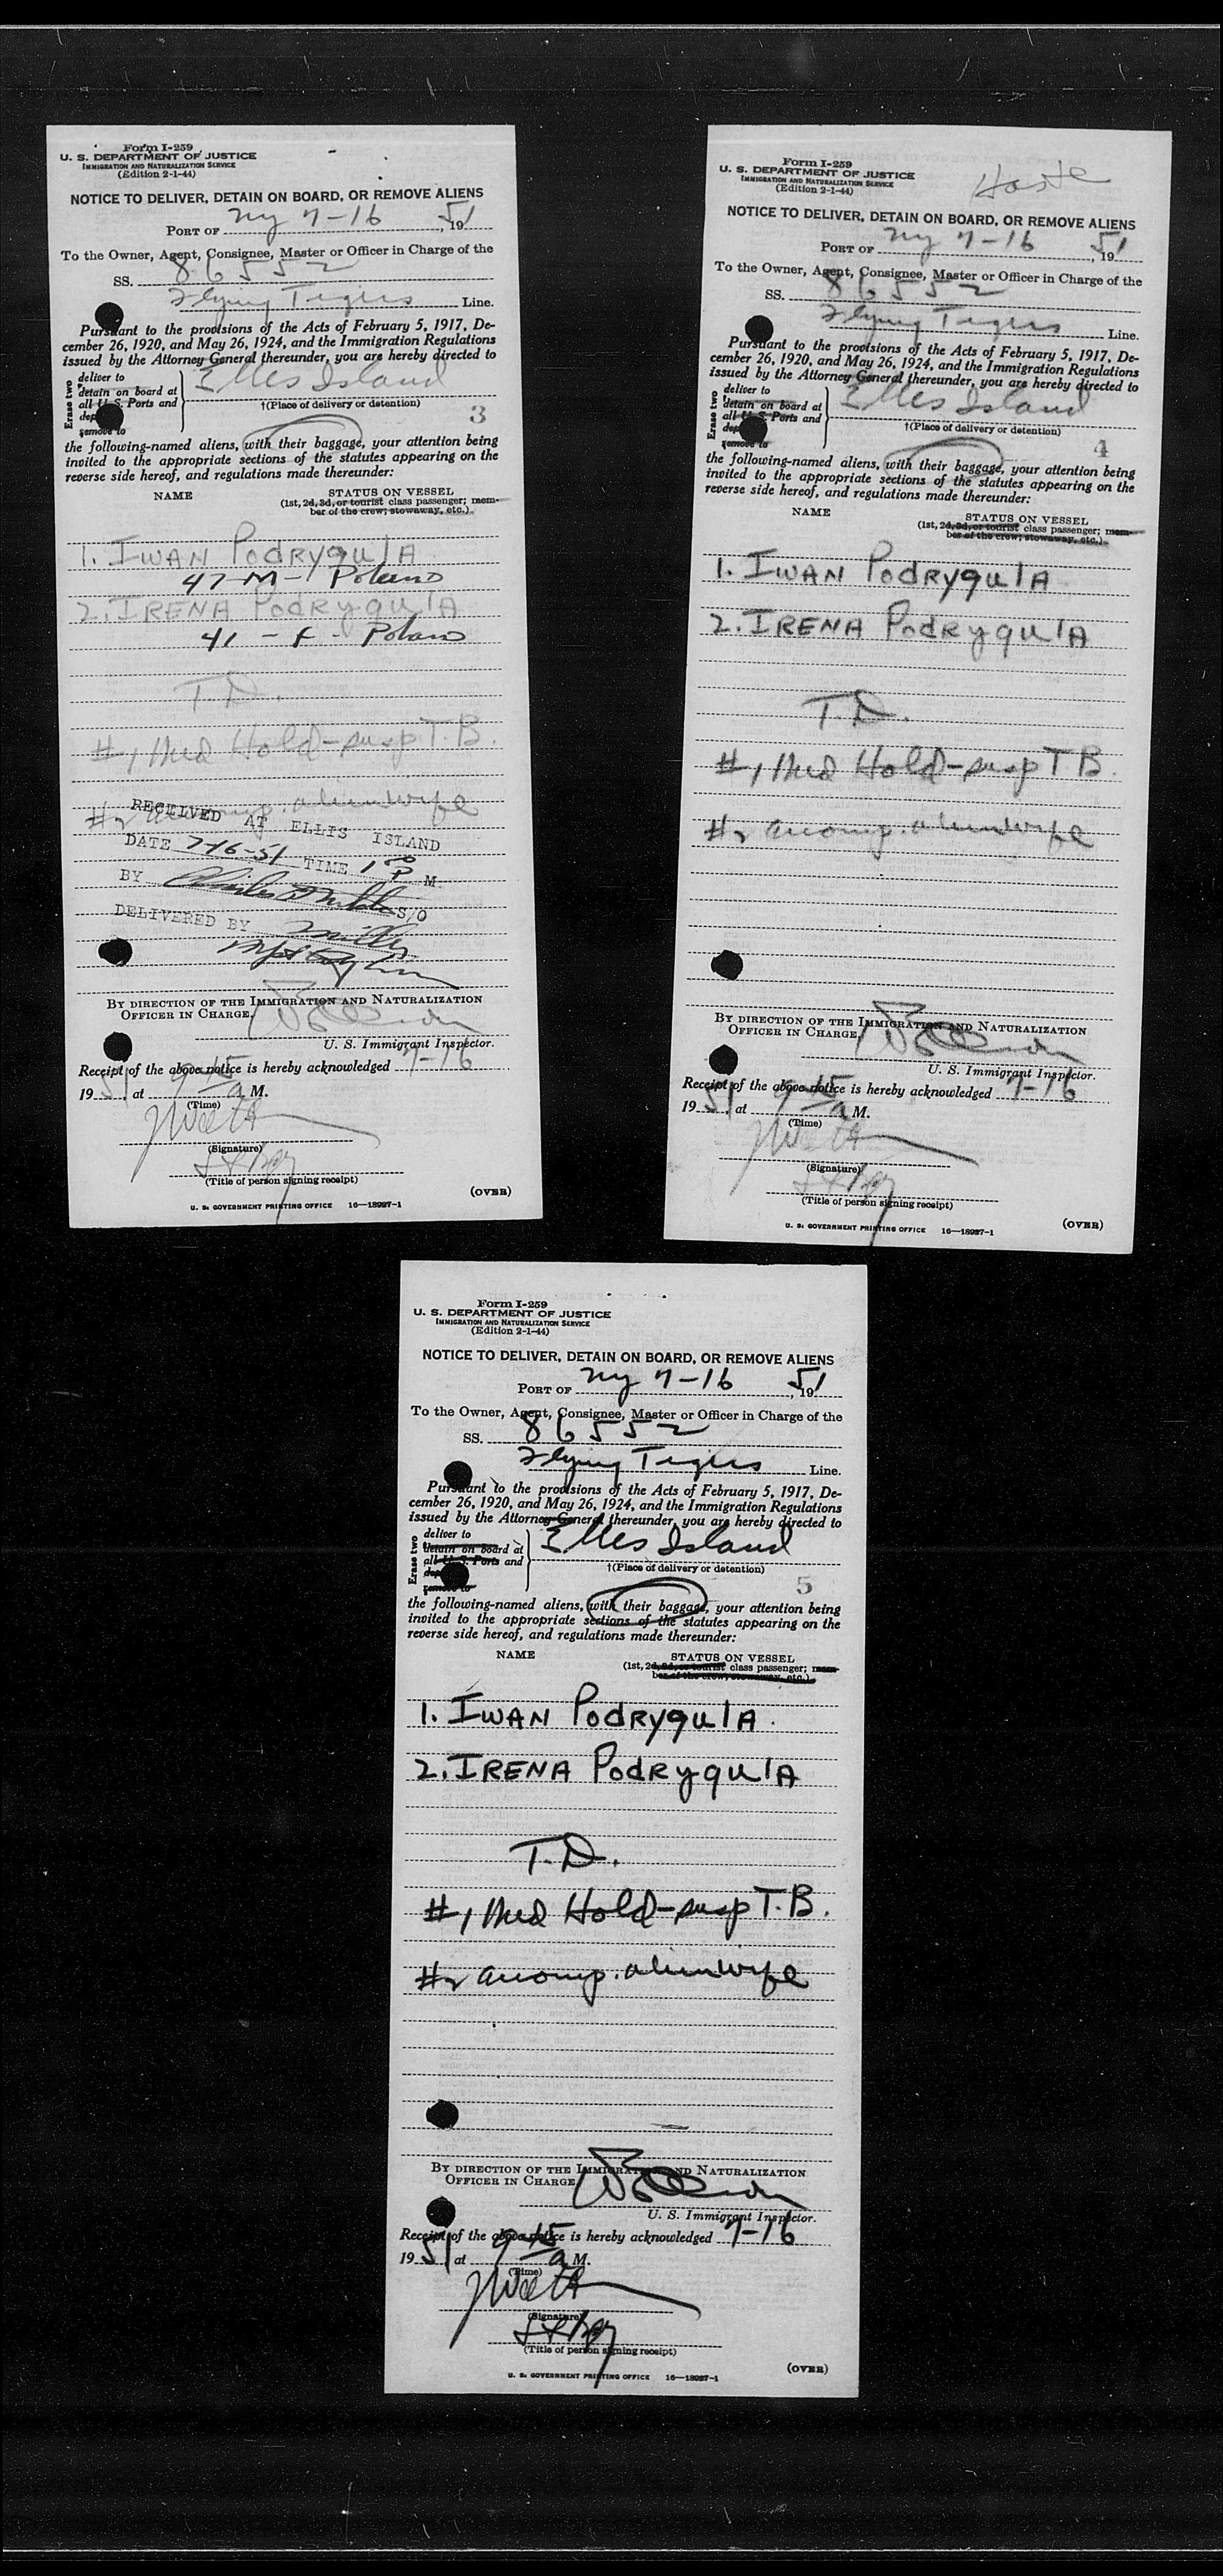 Form I-259
U. S. DEPARTMENT OF JUSTICE
IMMIGRATION AND NATURALIZATION SERVICE
(Edition 2-1-44)
NOTICE TO DELIVER, DETAIN ON BOARD, OR REMOVE ALIENS
PORT OF NY 7-16, 1951
To the Owner, Agent, Consignee, Master or Officer in Charge of the
SS. 86552
Flying Tigers Line.
Pursuant to the provisions of the Acts of February 5, 1917, De-
cember 26, 1920, and May 26, 1924, and the Immigration Regulations
issued by the Attorney General thereunder, you are hereby directed to
Erase two
deliver to
detain on board at
all U. S. Ports and
remove to
Elles Island
†(Place of delivery or detention)
3
the following-named aliens, with their baggage, your attention being
invited to the appropriate sections of the statutes appearing on the
reverse side hereof, and regulations made thereunder:
NAME STATUS ON VESSEL
(1st, 2d, 3d, or tourist class passenger; mem-
ber of the crew; stowaway, etc.)
1. IWAN PodRyqulA
47-M- Poland
2. IRENA PodRyqulA
41 - F - Poland
T.D.
#1 Med Hold-susp T.B.
#2 accomp. alien wife
RECEIVED AT ELLIS ISLAND
DATE 7-16-51 TIME 1 00 P M
BY S/O
DELIVERED BY
BY DIRECTION OF THE IMMIGRATION AND NATURALIZATION
OFFICER IN CHARGE.
U. S. Immigrant Inspector.
Receipt of the above notice is hereby acknowledged 7-16
1951, at 9 15 a M.
(Time)
(Signature)
(Title of person signing receipt)
(OVER)
U. S. GOVERNMENT PRINTING OFFICE 16—18927-1
Form I-259
U. S. DEPARTMENT OF JUSTICE
IMMIGRATION AND NATURALIZATION SERVICE
(Edition 2-1-44)
NOTICE TO DELIVER, DETAIN ON BOARD, OR REMOVE ALIENS
PORT OF NY 7-16, 1951
To the Owner, Agent, Consignee, Master or Officer in Charge of the
SS. 86552
Flying Tigers Line.
Pursuant to the provisions of the Acts of February 5, 1917, De-
cember 26, 1920, and May 26, 1924, and the Immigration Regulations
issued by the Attorney General thereunder, you are hereby directed to
Erase two
deliver to
detain on board at
all U. S. Ports and
remove to
Elles Island
†(Place of delivery or detention)
4
the following-named aliens, with their baggage, your attention being
invited to the appropriate sections of the statutes appearing on the
reverse side hereof, and regulations made thereunder:
NAME STATUS ON VESSEL
(1st, 2d, 3d, or tourist class passenger; mem-
ber of the crew; stowaway, etc.)
1. IWAN PodRyqulA
2. IRENA PodRyqulA
T.D.
#1 Med Hold-susp T B.
#2 accomp. alien wife
BY DIRECTION OF THE IMMIGRATION AND NATURALIZATION
OFFICER IN CHARGE.
U. S. Immigrant Inspector.
Receipt of the above notice is hereby acknowledged 7-16
1951, at 9 15 a M.
(Time)
(Signature)
(Title of person signing receipt)
(OVER)
U. S. GOVERNMENT PRINTING OFFICE 16—18927-1
Form I-259
U. S. DEPARTMENT OF JUSTICE
IMMIGRATION AND NATURALIZATION SERVICE
(Edition 2-1-44)
NOTICE TO DELIVER, DETAIN ON BOARD, OR REMOVE ALIENS
PORT OF NY 7-16, 1951
To the Owner, Agent, Consignee, Master or Officer in Charge of the
SS. 86552
Flying Tigers Line.
Pursuant to the provisions of the Acts of February 5, 1917, De-
cember 26, 1920, and May 26, 1924, and the Immigration Regulations
issued by the Attorney General thereunder, you are hereby directed to
Erase two
deliver to
detain on board at
all U. S. Ports and
remove to
Elles Island
†(Place of delivery or detention)
5
the following-named aliens, with their baggage, your attention being
invited to the appropriate sections of the statutes appearing on the
reverse side hereof, and regulations made thereunder:
NAME STATUS ON VESSEL
(1st, 2d, 3d, or tourist class passenger; mem-
ber of the crew; stowaway, etc.)
1. IWAN PodRyqulA.
2. IRENA PodRyqulA
T.D.
#1 Med Hold-susp T.B.
#2 accomp. alien wife
BY DIRECTION OF THE IMMIGRATION AND NATURALIZATION
OFFICER IN CHARGE
U. S. Immigrant Inspector.
Receipt of the above notice is hereby acknowledged 7-16
1951, at 9 15 a M.
(Time)
(Signature)
(Title of person signing receipt)
(OVER)
U. S. GOVERNMENT PRINTING OFFICE 16—18927-1